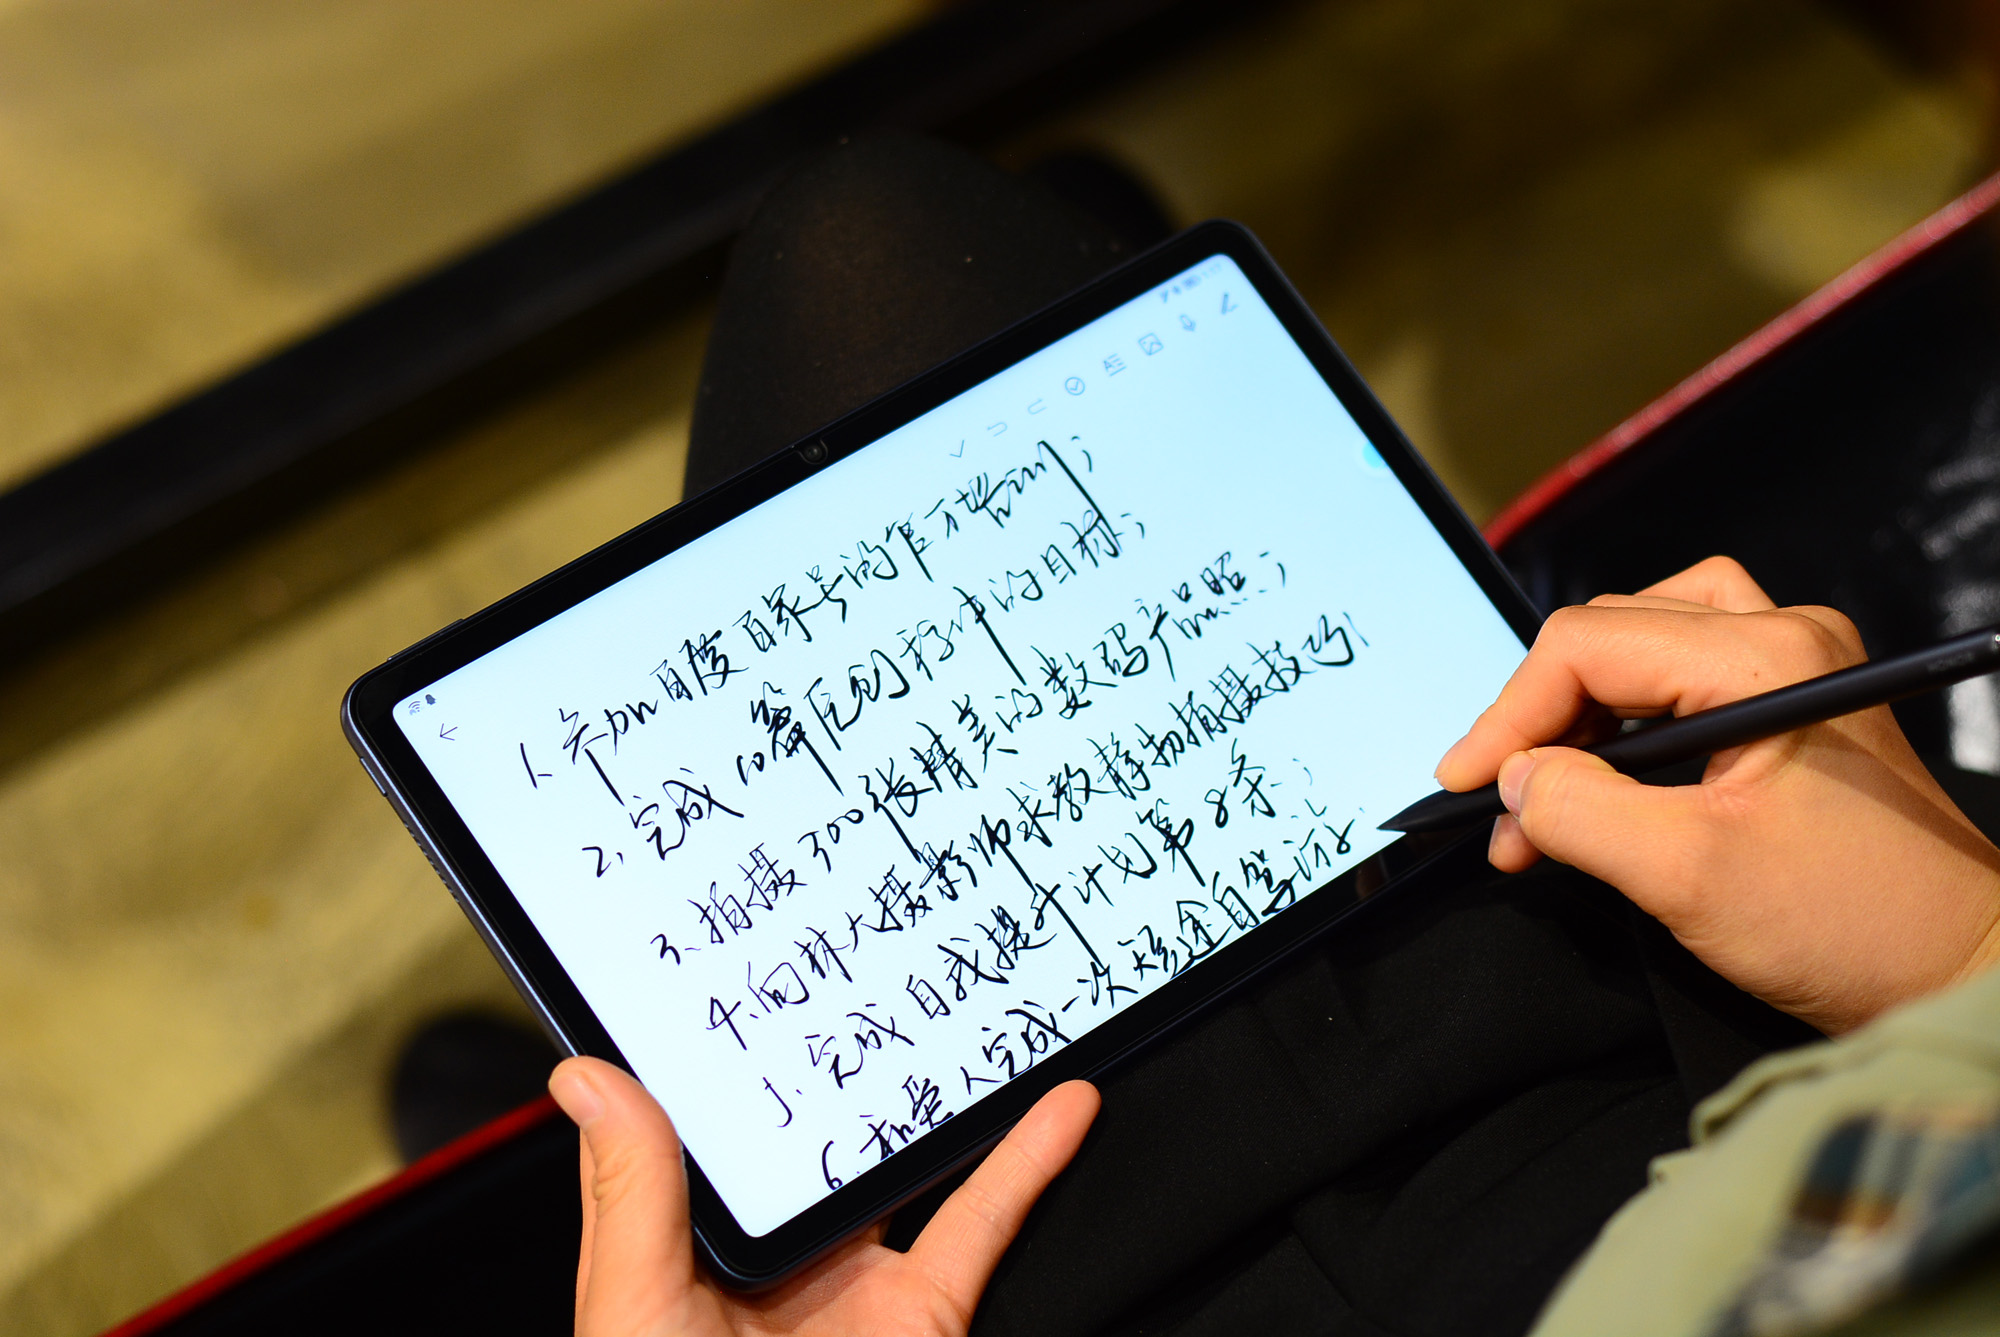 1、参加百度百家号的官方培训;
2、完成10篇原创标准的目标;
3、拍摄300张精美的数码产品照;
4、向林大摄影师求教静物拍摄技巧!
5、完成自我提升计划第8条;
6、和爱人完成一次短途自驾游;
HONOR